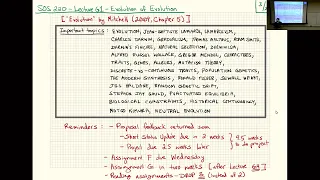 SOS 220 - Lecture G1 - Evolution of Evolution
["Evolution" by Mitchell (2009, Chapter 5)]
Important topics:
EVOLUTION, JEAN-BAPTISTE LAMARCK, LAMARCKISM,
CHARLES DARWIN, GERADUALISM, THOMAS MALTHUS, ADAM SMITH,
DARWIN'S FINCHES, NATURAL SELECTION, DARWINISM,
ALFRED RUSSEL WALLACE, GREGOR MENDEL, CHARACTERS,
TRAITS, GENES, ALLELES, MUTATION THEORY,
DISCRETE-VS-CONTINUOUS TRAITS, POPULATION GENETICS,
THE MODERN SYNTHESIS, RONALD FISHER, SEWALL WRIGHT,
JBS HALDANE, RANDOM GENETIC DRIFT,
STEPHEN JAY GOULD, PUNCTUATED EQUILIBRIA,
BIOLOGICAL CONSTRAINTS, HISTORICAL CONTINGENCY,
MOTOO KIMURA, NEUTRAL EVOLUTION
Reminders: - Proposal feedback returned soon
- Short Status Update due in 2 weeks
- Project due 2.5 weeks later
4.5 weeks
to do project
- Assignment F due Wednesday
- Assignment G in two weeks [after Lecture G4]
- Reading assignments - DROP 3 (instead of 2)